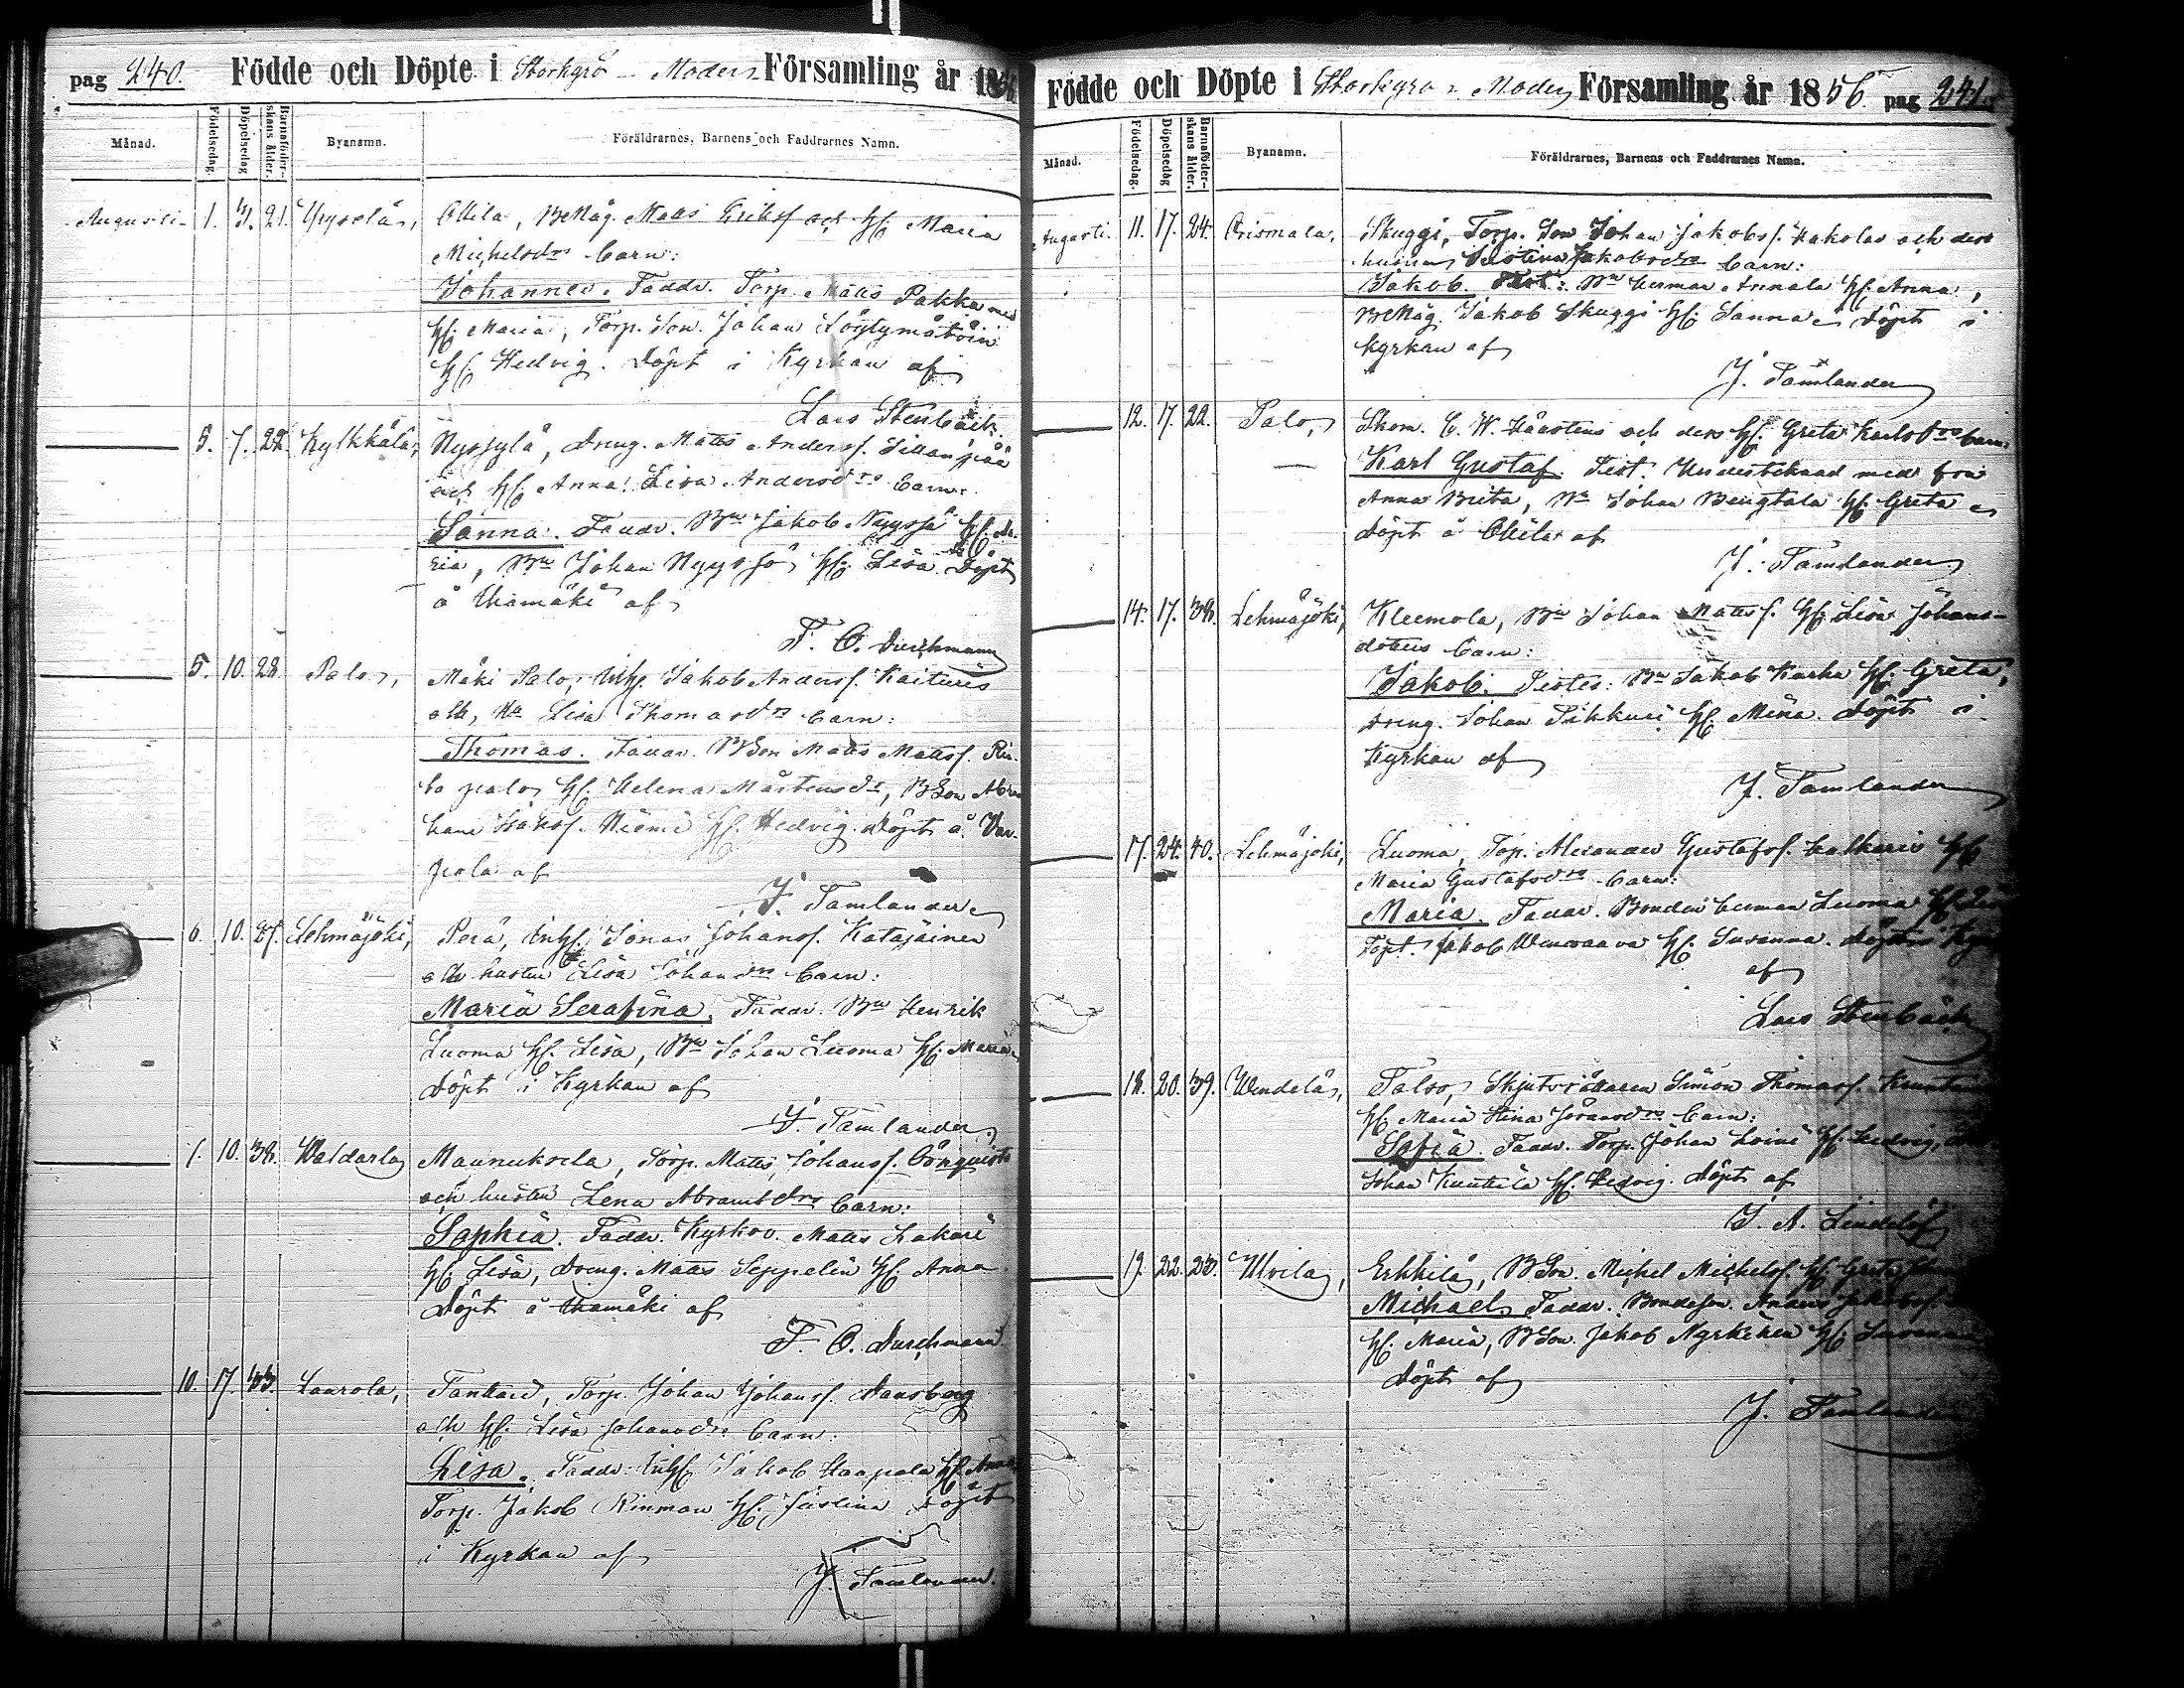 pag 240. Födde och Döpte i Storkyrö Moder Församling år 1856
Månad. Födelsedag. Döpelsedag Barnaföder-skans ålder. Byanamn. Föräldrarnes, Barnens och Faddrarnes Namn.
Augusti 1. 3. 21. Yryselä, Ollila, BeMåg. Matts Eriksf och hf. Maria
Michelsdrs barn:
Johannes. Faddr. Torp. Matts Pakka med
hf. Maria, Torp. Son. Johan
hf. Hedvig. Döpt i Kyrkan af
Lars Stenbäck.
5. 7. 22. Kylkkälä, Nyysylä, Dreng. Matts Andersf. Sillanpää
och hf. Anna Lisa Andersdrs barn:
Sanna. Faddr. Bn Jakob Nyyssö hf. Ma-
ria, Bn Johan Nyyssö hf. Lisa. Döpt
å Uhamäki af
F. O. Durchmann
5. 10. 28. Palo, Mäki Palo, Inh. Jakob Andersf. Kaituris
och Hu Lisa Thomasdrs barn:
Thomas. Faddr. BSon Matts Mattsf. Rin-
ta palo hf. Helena Mårtensdr, BSon Abra
ham Isaksf. Niemi hf. Hedvig. Döpt å Var-
pola af
J. Tamlander
6. 10. 27. Lehmäjoki, Perä, Inh. Jonas Johansf. Katajainen
och hustru Lisa Johansdrs barn:
Maria Serafina. Faddr. Bn Henrik
Luoma hf. Lisa, Bn Johan Luoma hf. Maria.
Döpt i Kyrkan af
J. Tamlander
7. 10. 38. Waldarla Maunuksela, Torp. Matts Johansf. Lönquists
och hustru Lena Abramsdrs barn:
Sophia. Faddr. Kyrkov. Matts Lakari
hf. Lisa, Dreng. Matts Seppelin hf. Anna.
Döpt å Uhamäki af
F. O. Durchmann
10. 17. 33. Laurola, Torp. Johan Johansf. Dansberg
och hf. Lisa Johansdrs barn:
Lisa. Faddr: Inh. Jakob Haapala hf. Anna
Torp. Jakob Rinman hf. Justina Döpt
i Kyrkan af
J. Tamlander.
Födde och Döpte i Storkyro Moder Församling år 1856. pag 241.
Månad. Födelsedag. Döpelsedag Barnaföder-skans ålder. Byanamn. Föräldrarnes, Barnens och Faddrarnes Namn.
Augusti. 11. 17. 24. Orismala, Skuggi, Torp. Son Johan Jakobsf. Hakolas och dess
hustru Justina Jakobsdrs barn:
Jakob. Test: Bn Herman Annala hf. Anna,
BeMåg. Jakob Skuggi hf. Sanna. Döpt i
kyrkan af
J. Tamlander
12. 17. 22. Palo, Skom. C. W. och dess hf. Greta Karlsdrs barn:
Karl Gustaf. Test. med fru
Anna Brita, Bn Johan Bengtala hf. Greta
Döpt å Ollila af
J. Tamlander
14. 17. 38. Lehmäjoki, Kleemola, Bn Johan Mattsf. hf. Lisa Johans-
dotters barn:
Jakob. Testes: Bn Jakob Karhu hf. Greta,
Dreng. Johan Pikkuri hf. Mina. Döpt i
Kyrkan af
J. Tamlander
17. 24. 40. Lehmäjoki, Luoma, Torp. Alexander Gustafsf. hf.
Maria Gustafsdrs barn:
Maria. Faddr. Bonden Herman Luoma hf.
Torp. Jakob hf. Susanna. Döpt i
af
Lars Stenbäck
18. 20. 39. Wendelä, Talso, Skjutsrättaren Simon Thomasf.
hf. Maria Stina Göransdrs barn:
Sofia. Faddr. Torp. Johan Loini hf. Hedvig,
Johan Kuuttila hf. Hedvig. Döpt af
J. A. Lindelöf
19. 22. 23. Ulvila, Erkkilä, BSon. Michel Michelsf. hf. Greta
Michael. Faddr. Bondeson. Anders Jakobsf.
hf. Maria, BSon. Jakob Nyrkinen hf. Susanna
Döpt af
J. Tamlander